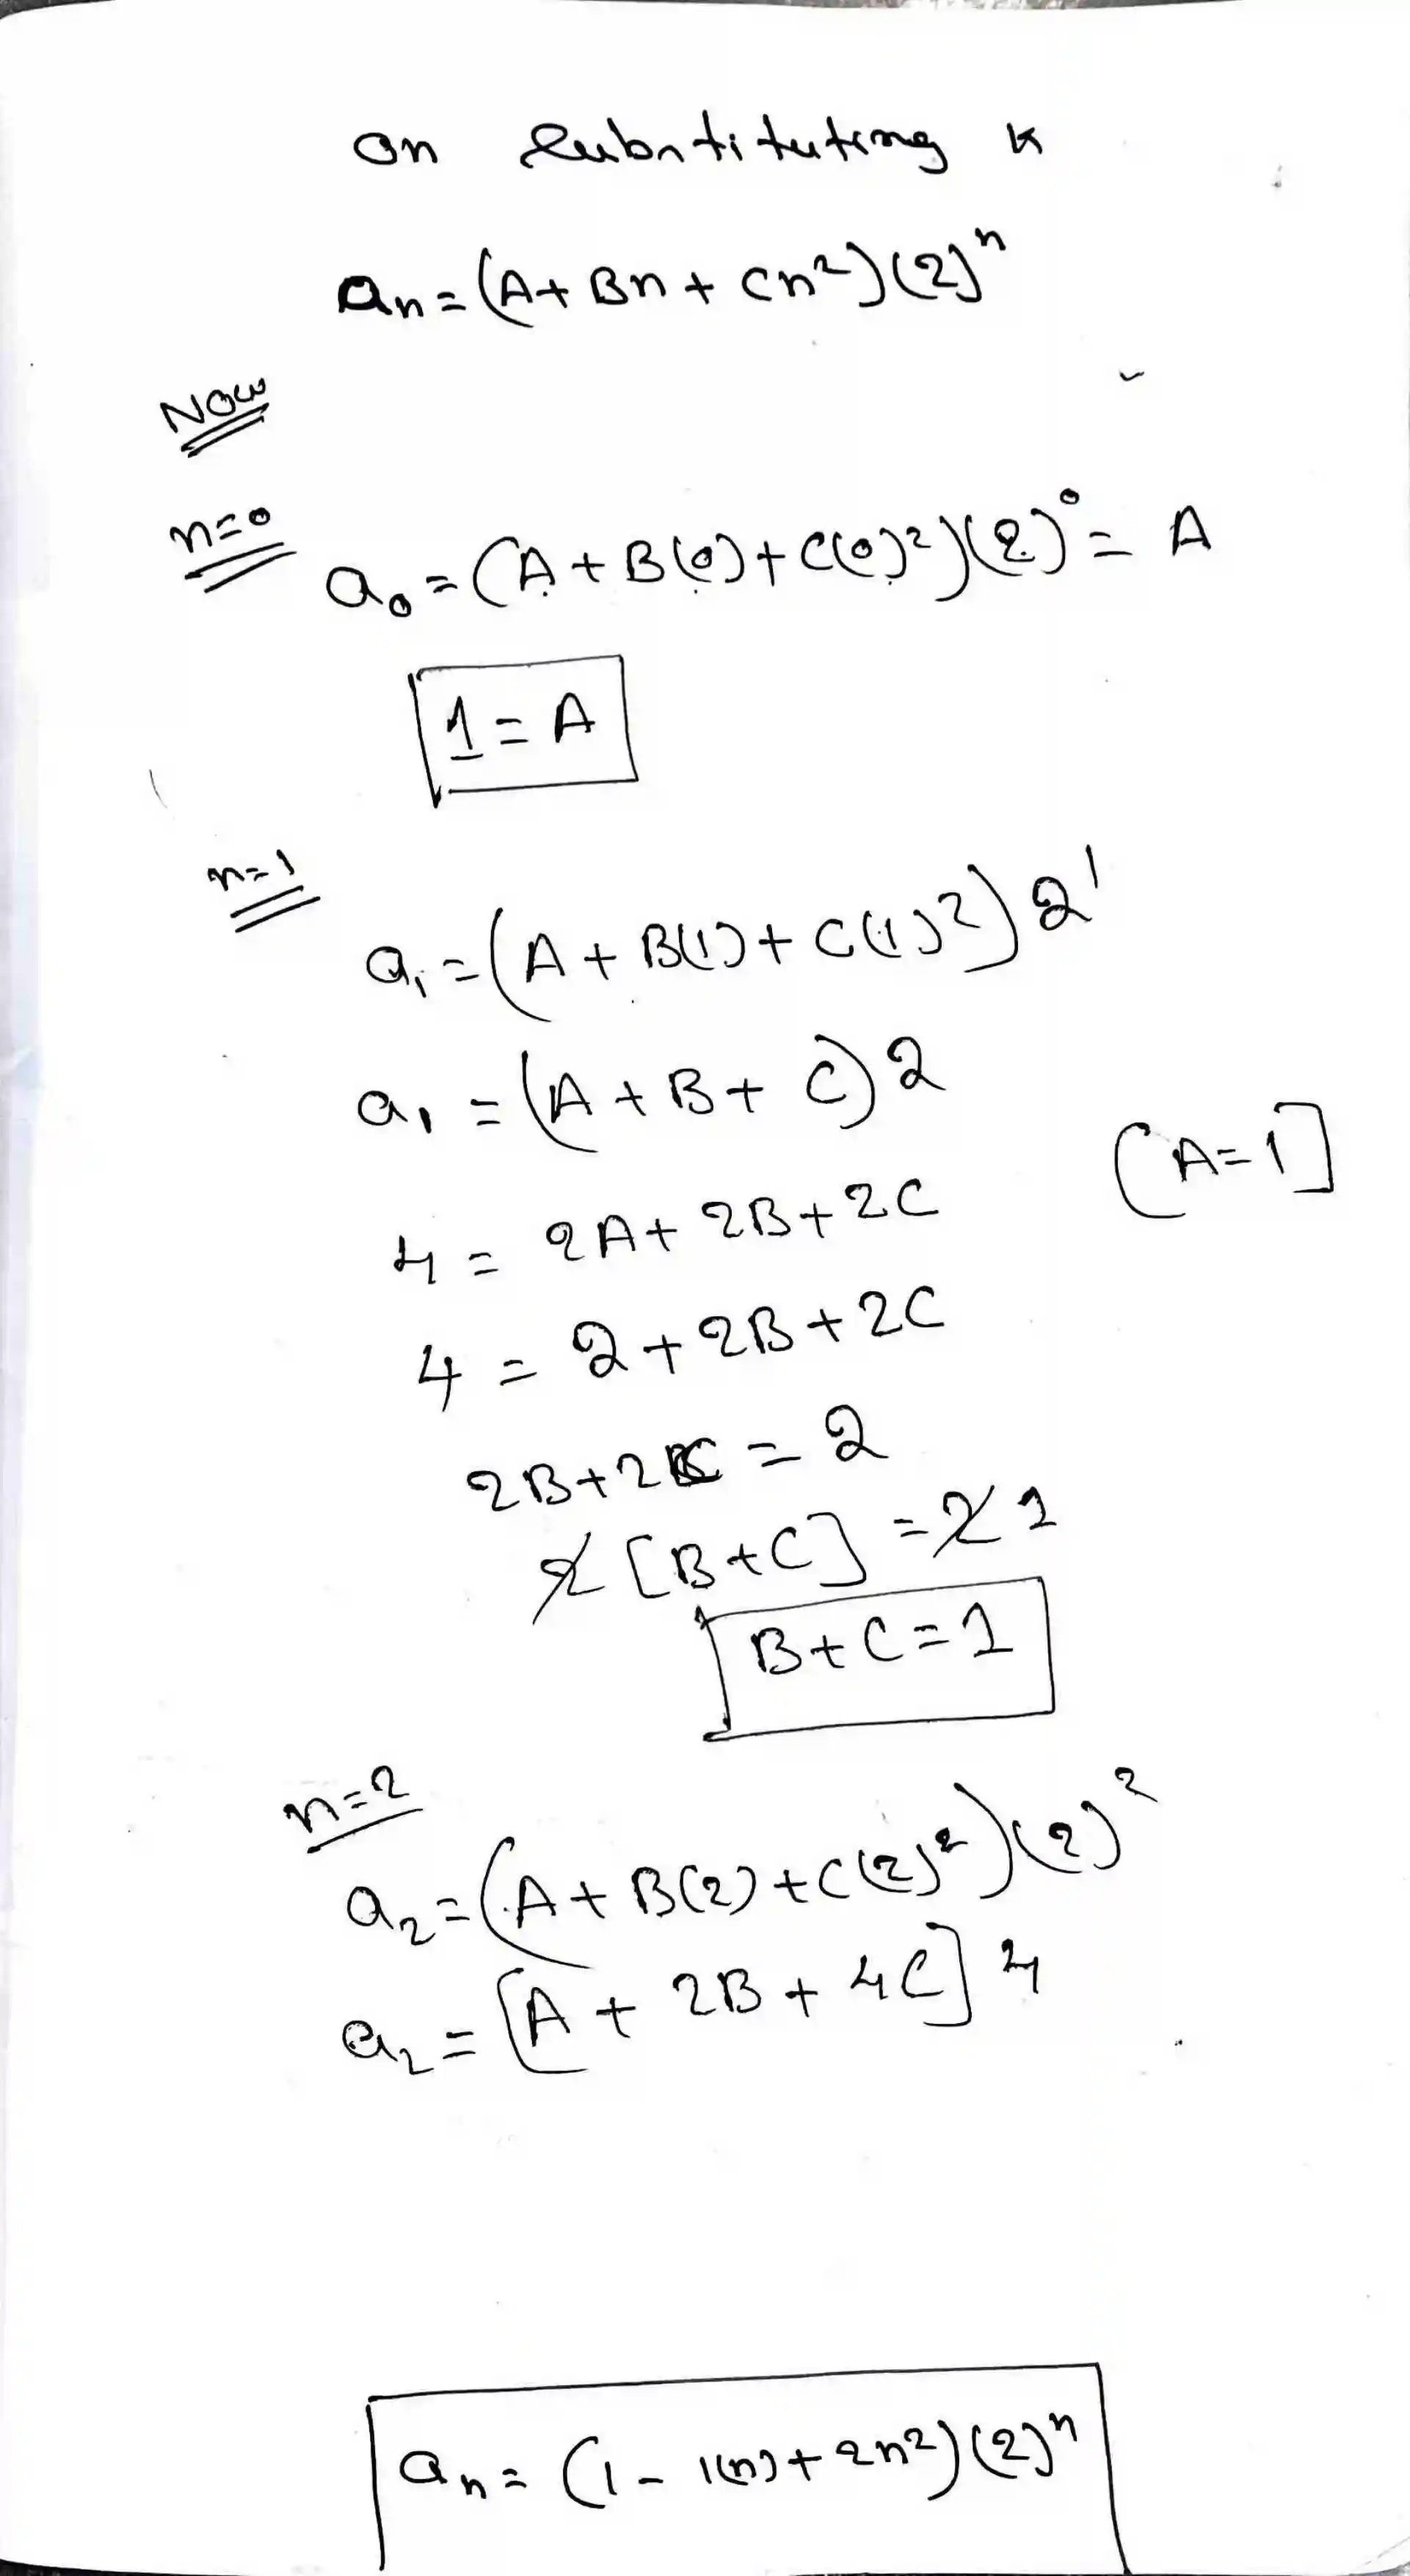 on substituting K
an = (A + Bn + Cn²)(2)ⁿ
Now
n=0
a₀ = (A + B(0) + C(0)²)(2)⁰ = A
1 = A
n=1
a₁ = (A + B(1) + C(1)²) 2¹
a₁ = (A + B + C) 2
[A=1]
4 = 2A + 2B + 2C
4 = 2 + 2B + 2C
2B + 2C = 2
2 [B + C] = 2 1
B + C = 1
n=2
a₂ = (A + B(2) + C(2)²)(2)²
a₂ = [A + 2B + 4C] 4
an = (1 - 1(n) + 2n²)(2)ⁿ